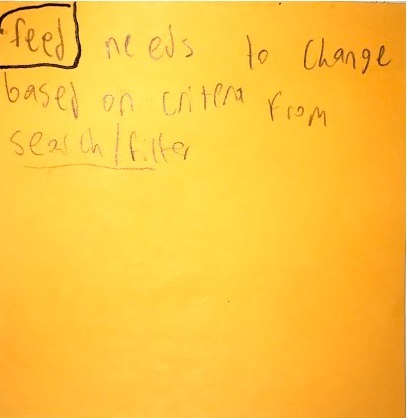 feed needs to change
based on criteria from
search/filter